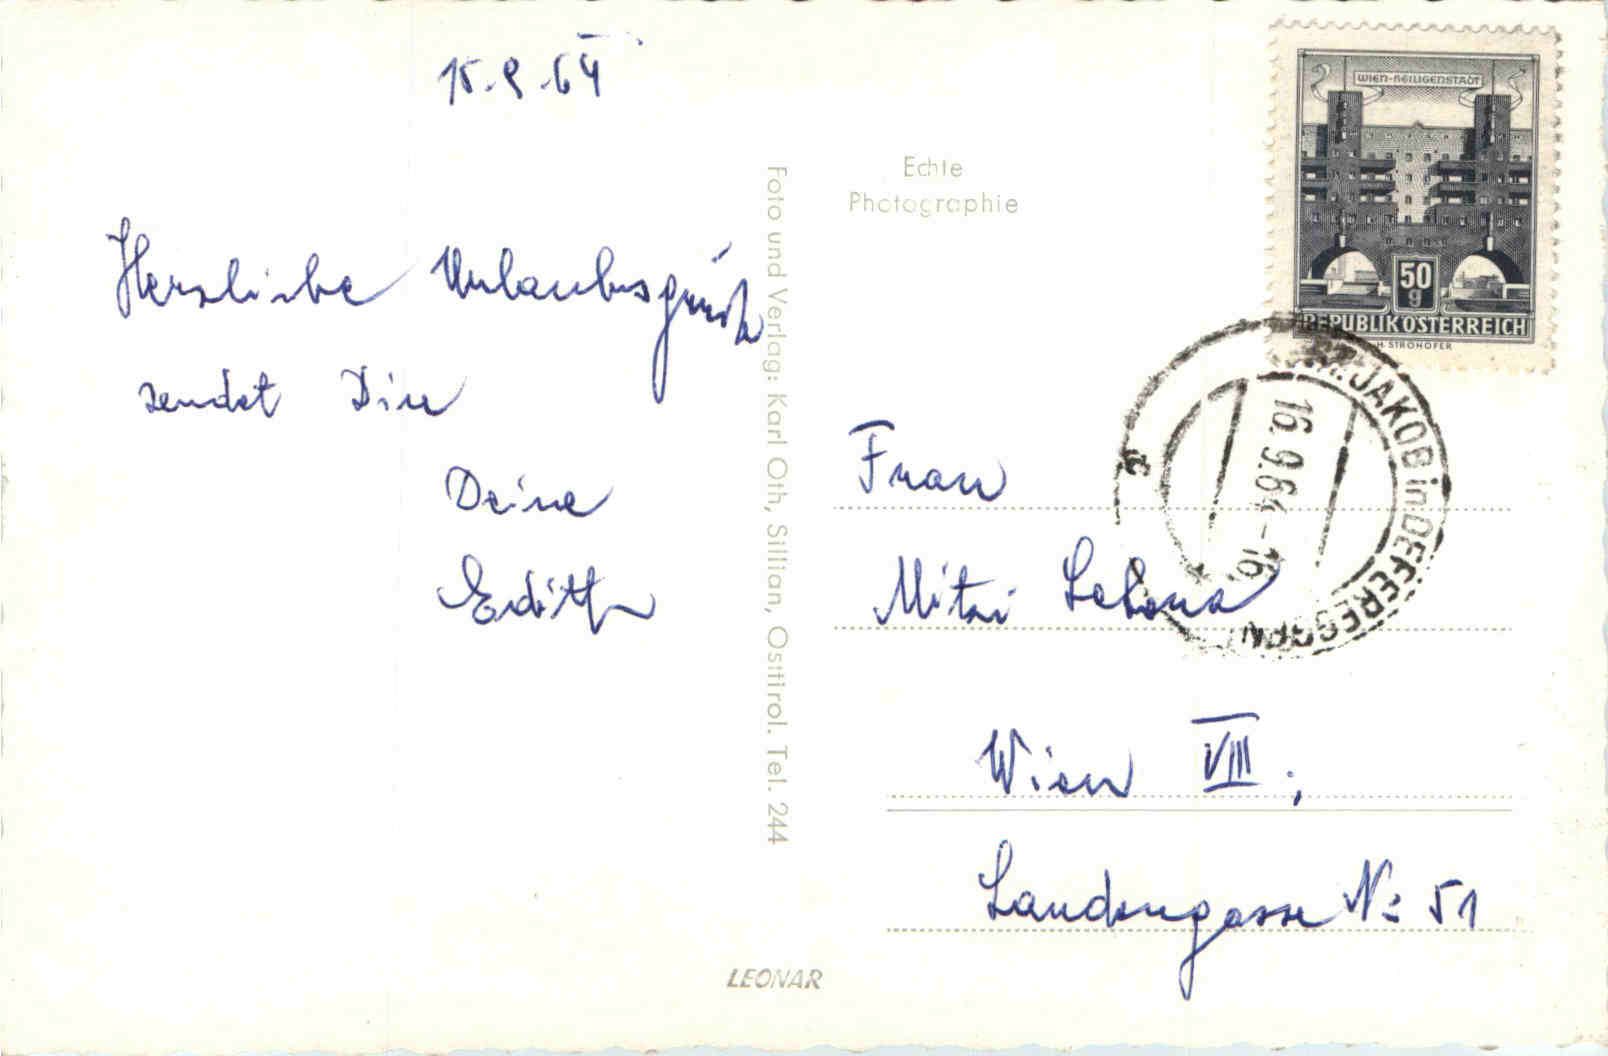 15.9.64
Herzliche Urlaubsgrüße
sendet Dir
Deine
Edith
Foto und Verlag: Karl Oth, Sillian, Osttirol. Tel. 244
Echte
Photographie
WIEN-HEILIGENSTADT
50
g
REPUBLIK ÖSTERREICH
H. STROHOFER
JAKOB in DEFEREGGEN
16.9.64-16
Frau
Mitzi
Wien VIII,
Laudongasse No 51
LEONAR